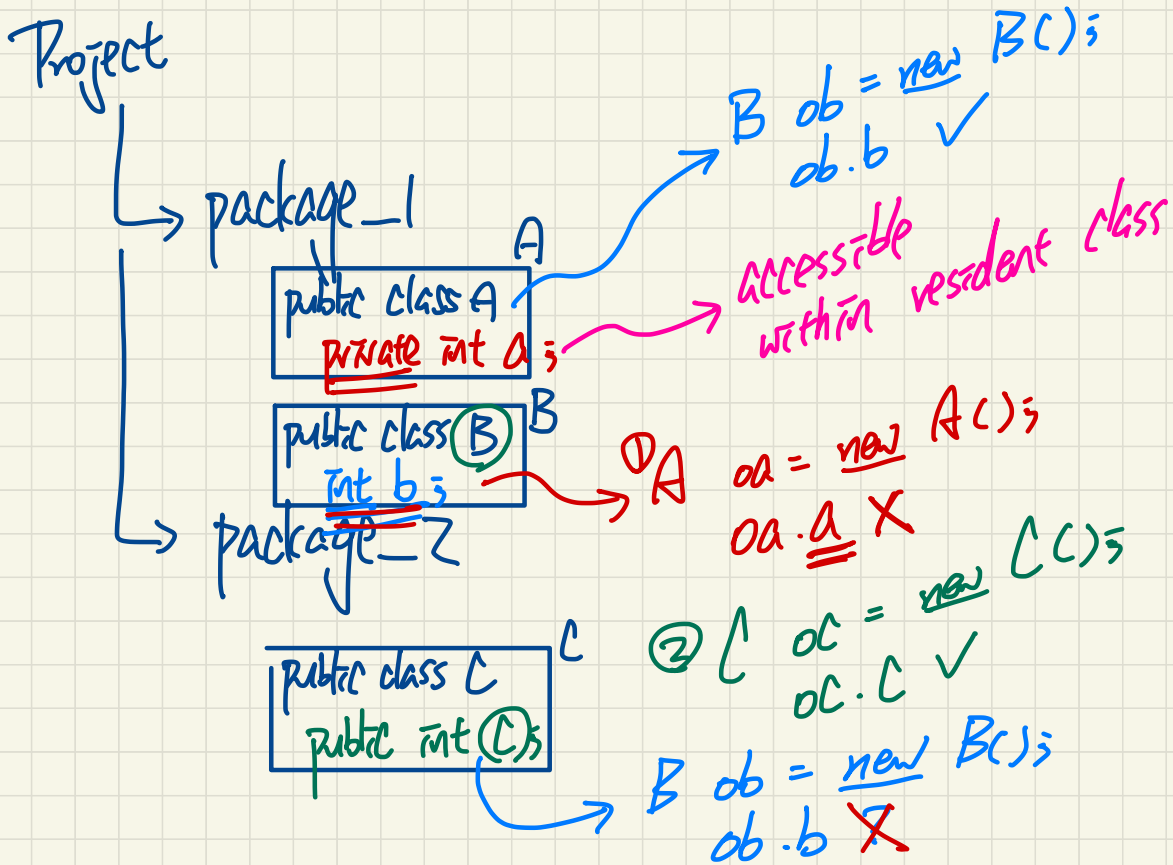 Project
package_1
A
public class A
private int a;
B
public class B
int b;
package_2
C
public class C
public int C;
B ob = new B();
ob.b ✓
accessible
within resident class
① A oa = new A();
oa.a X
② C oc = new C();
oc.c ✓
B ob = new B();
ob.b X